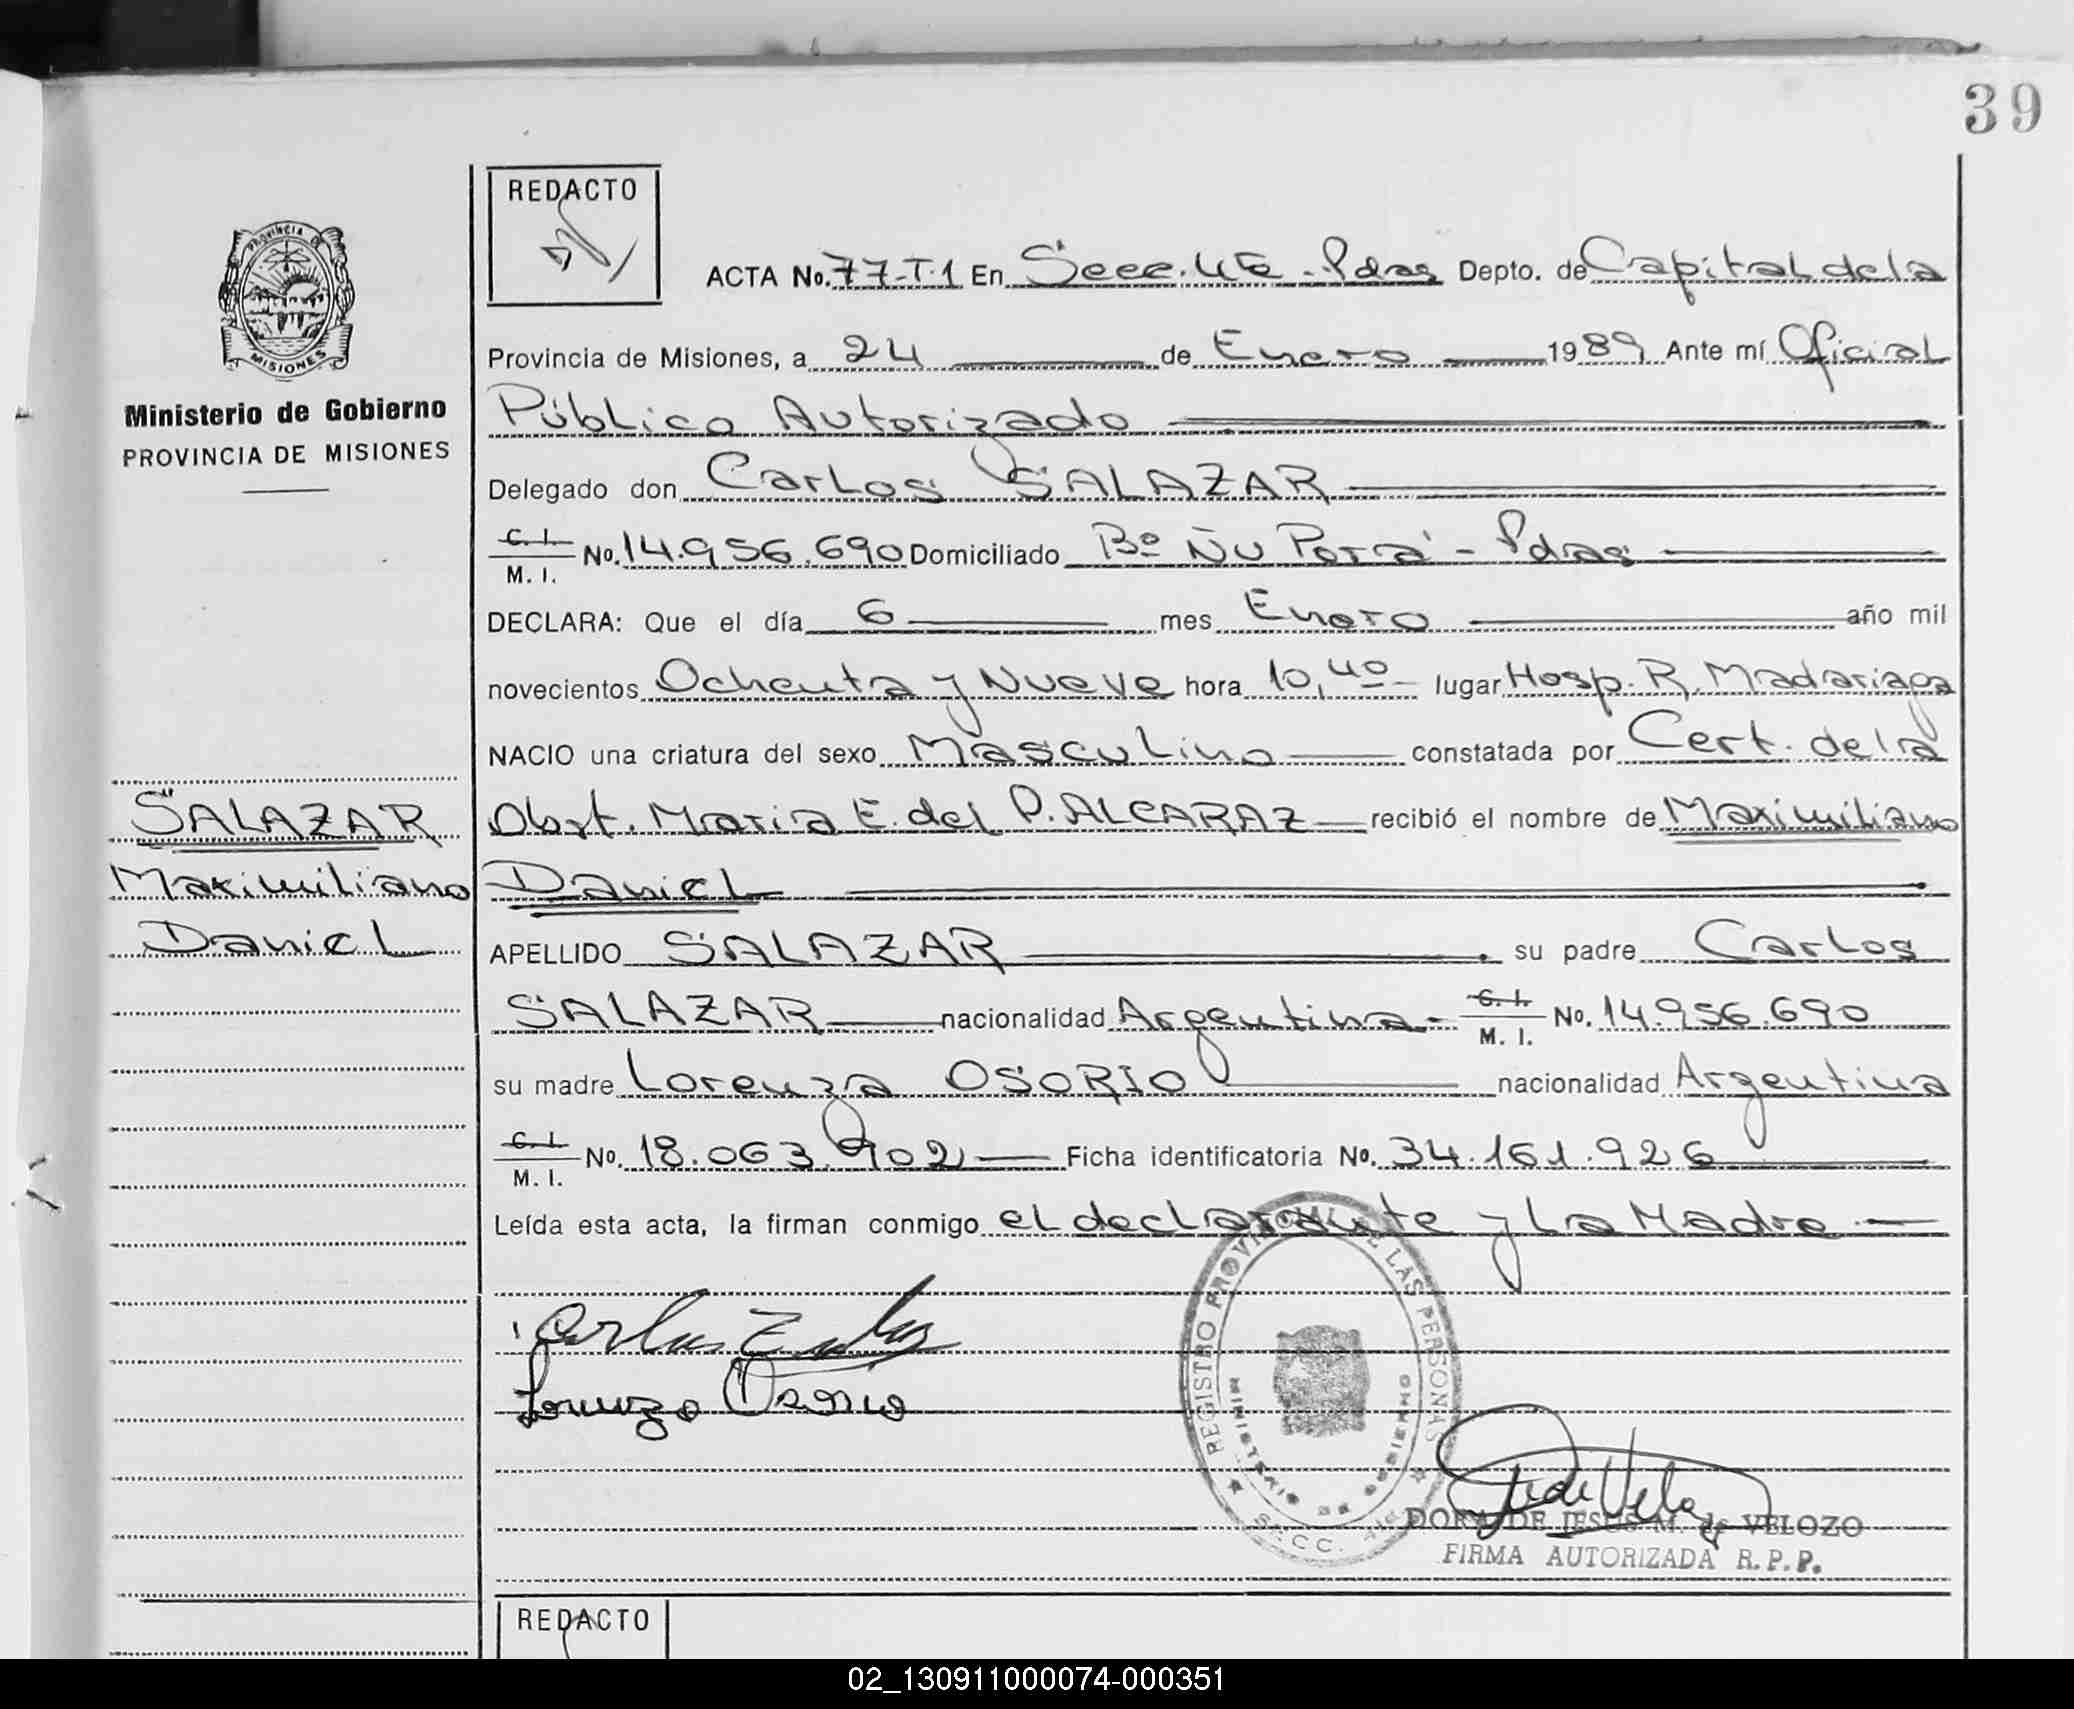 39
REDACTO
ACTA No. 77-T.1 En Secc. 4ta - Pdas Depto. de Capital de la
PROVINCIA DE
MISIONES
Ministerio de Gobierno
PROVINCIA DE MISIONES
Provincia de Misiones, a 24 de Enero 1989 Ante mí Oficial
Público Autorizado
Delegado don Carlos SALAZAR
C. I.
M. I. No. 14.956.690 Domiciliado Bº Ñu Porá - Pdas
DECLARA: Que el día 6 mes Enero año mil
novecientos Ochenta y Nueve hora 10,40 lugar Hosp. R. Madariaga
NACIO una criatura del sexo Masculino constatada por Cert. de la
Obst. Maria E. del P. ALCARAZ recibió el nombre de Maximiliano
Daniel
SALAZAR
Maximiliano
Daniel
APELLIDO SALAZAR su padre Carlos
SALAZAR nacionalidad Argentina - C. I. M. I. No. 14.956.690
su madre Lorenza OSORIO nacionalidad Argentina
C. I.
M. I. No. 18.063.902 Ficha identificatoria No. 34.161.926
Leída esta acta, la firman conmigo el declarante y la Madre
Carlos
Lorenza Osorio
REGISTRO PROVINCIAL DE LAS PERSONAS
MINISTERIO DE GOBIERNO
SECC. 4ta
DORA DE JESUS M. de VELOZO
FIRMA AUTORIZADA R.P.P.
REDACTO
02_130911000074-000351